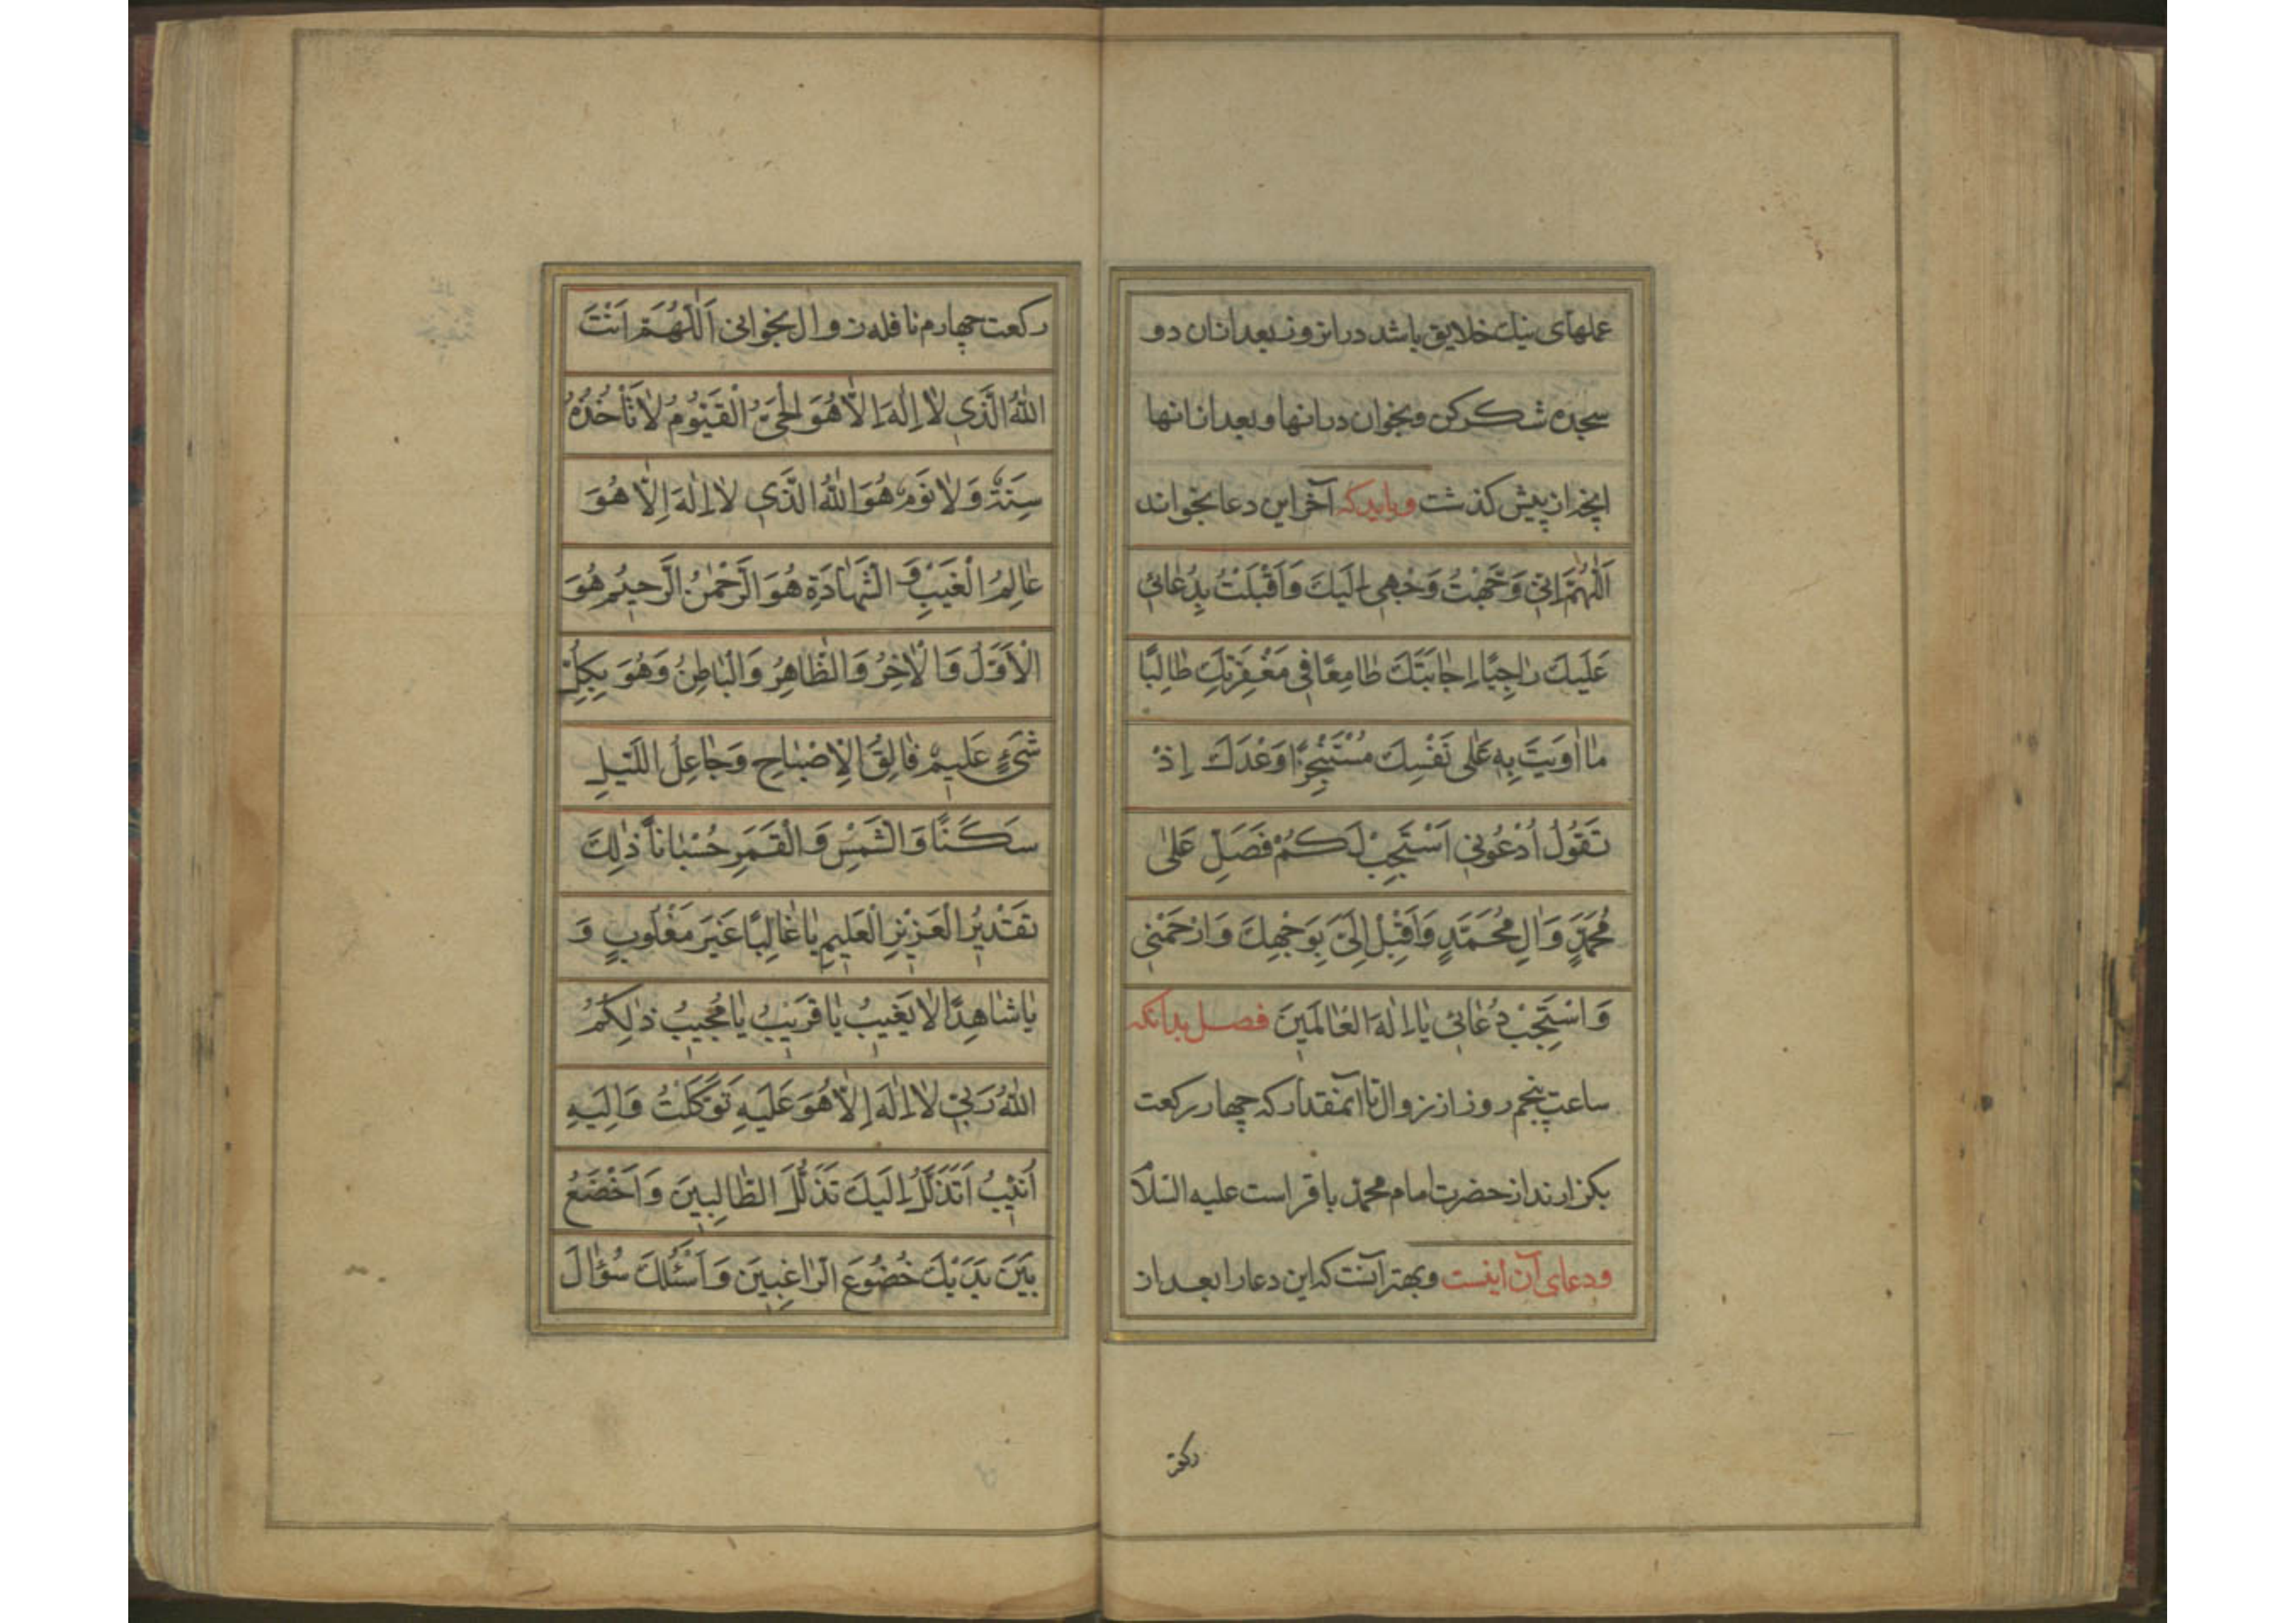 عملهای نیك خلایق باشد در انروز و بعد ازان دو
سجده شکر کن و بخوان در انها و بعد از انها
انچه از پیش کذشت و باید که آخر این دعا بخواند
اَللّٰهُمَّ اِنّی وَجَّهْتُ وَجْهی اِلَیْكَ وَاَقْبَلْتُ بِدُعٰائی
عَلَیْكَ رٰاجِیًا اِجٰابَتَكَ طٰامِعًا فی مَغْفِرَتِكَ طٰالِبًا
مٰا اَوَیْتَ بِهِ عَلٰی نَفْسِكَ مُسْتَنْجِزًا وَعْدَكَ اِذْ
تَقُوُلُ اُدْعُوُنی اَسْتَجِبْ لَكُمْ فَصَلِّ عَلٰی
مُحَمَّدٍ وَاٰلِ مُحَمَّدٍ وَاَقْبِلْ اِلَیَّ بِوَجْهِكَ وَارْحَمْنی
وَاسْتَجِبْ دُعٰائی یٰا اِلٰهَ الْعٰالَمینَ فصل بدانکه
ساعت پنجم روز از زوال تا آنمقدار که چهار رکعت
بکزارند از حضرت امام محمد باقر است علیه السلام
و دعای آن اینست و بهتر آنست که این دعا را بعد از
رکعت
رکعت چهارم نافله زوال بخوانی اَللّٰهُمَّ اَنْتَ
اللّٰهُ الَّذی لاٰ اِلٰهَ اِلاّٰ هُوَ الْحَیُّ الْقَیُّوُمُ لاٰ تَأْخُذُهُ
سِنَةٌ وَلاٰ نَوْمٌ هُوَ اللّٰهُ الَّذی لاٰ اِلٰهَ اِلاّٰ هُوَ
عٰالِمُ الْغَیْبِ وَ الشَّهٰادَةِ هُوَ الرَّحْمٰنُ الرَّحیُم هُوَ
الْاَوَّلُ وَالْاٰخِرُ وَالظّٰاهِرُ وَالْبٰاطِنُ وَهُوَ بِكُلِّ
شَیْءٍ عَلیمٌ فٰالِقُ الْاِصْبٰاحِ وَجٰاعِلُ اللَّیْلِ
سَكَنًا وَالشَّمْسِ وَالْقَمَرِ حُسْبٰاناً ذٰلِكَ
تَقْدیُر الْعَزیزِ الْعَلیمِ یٰا غٰالِبًا غَیْرَ مَغْلُوُبٍ وَ
یٰا شٰاهِدًا لاٰ یَغیبُ یٰا قَریبُ یٰا مُجیبُ ذٰلِكُمُ
اللّٰهُ رَبّی لاٰ اِلٰهَ اِلاّٰ هُوَ عَلَیْهِ تَوَكَّلْتُ وَاِلَیْهِ
اُنیبُ اَتَذَلَّلُ اِلَیْكَ تَذَلُّلَ الطّٰالِبینَ وَاَخْضَعُ
بَیْنَ یَدَیْكَ خُضُوُعَ الرّٰاغِبینَ وَاَسْئَلُكَ سُؤٰالَ